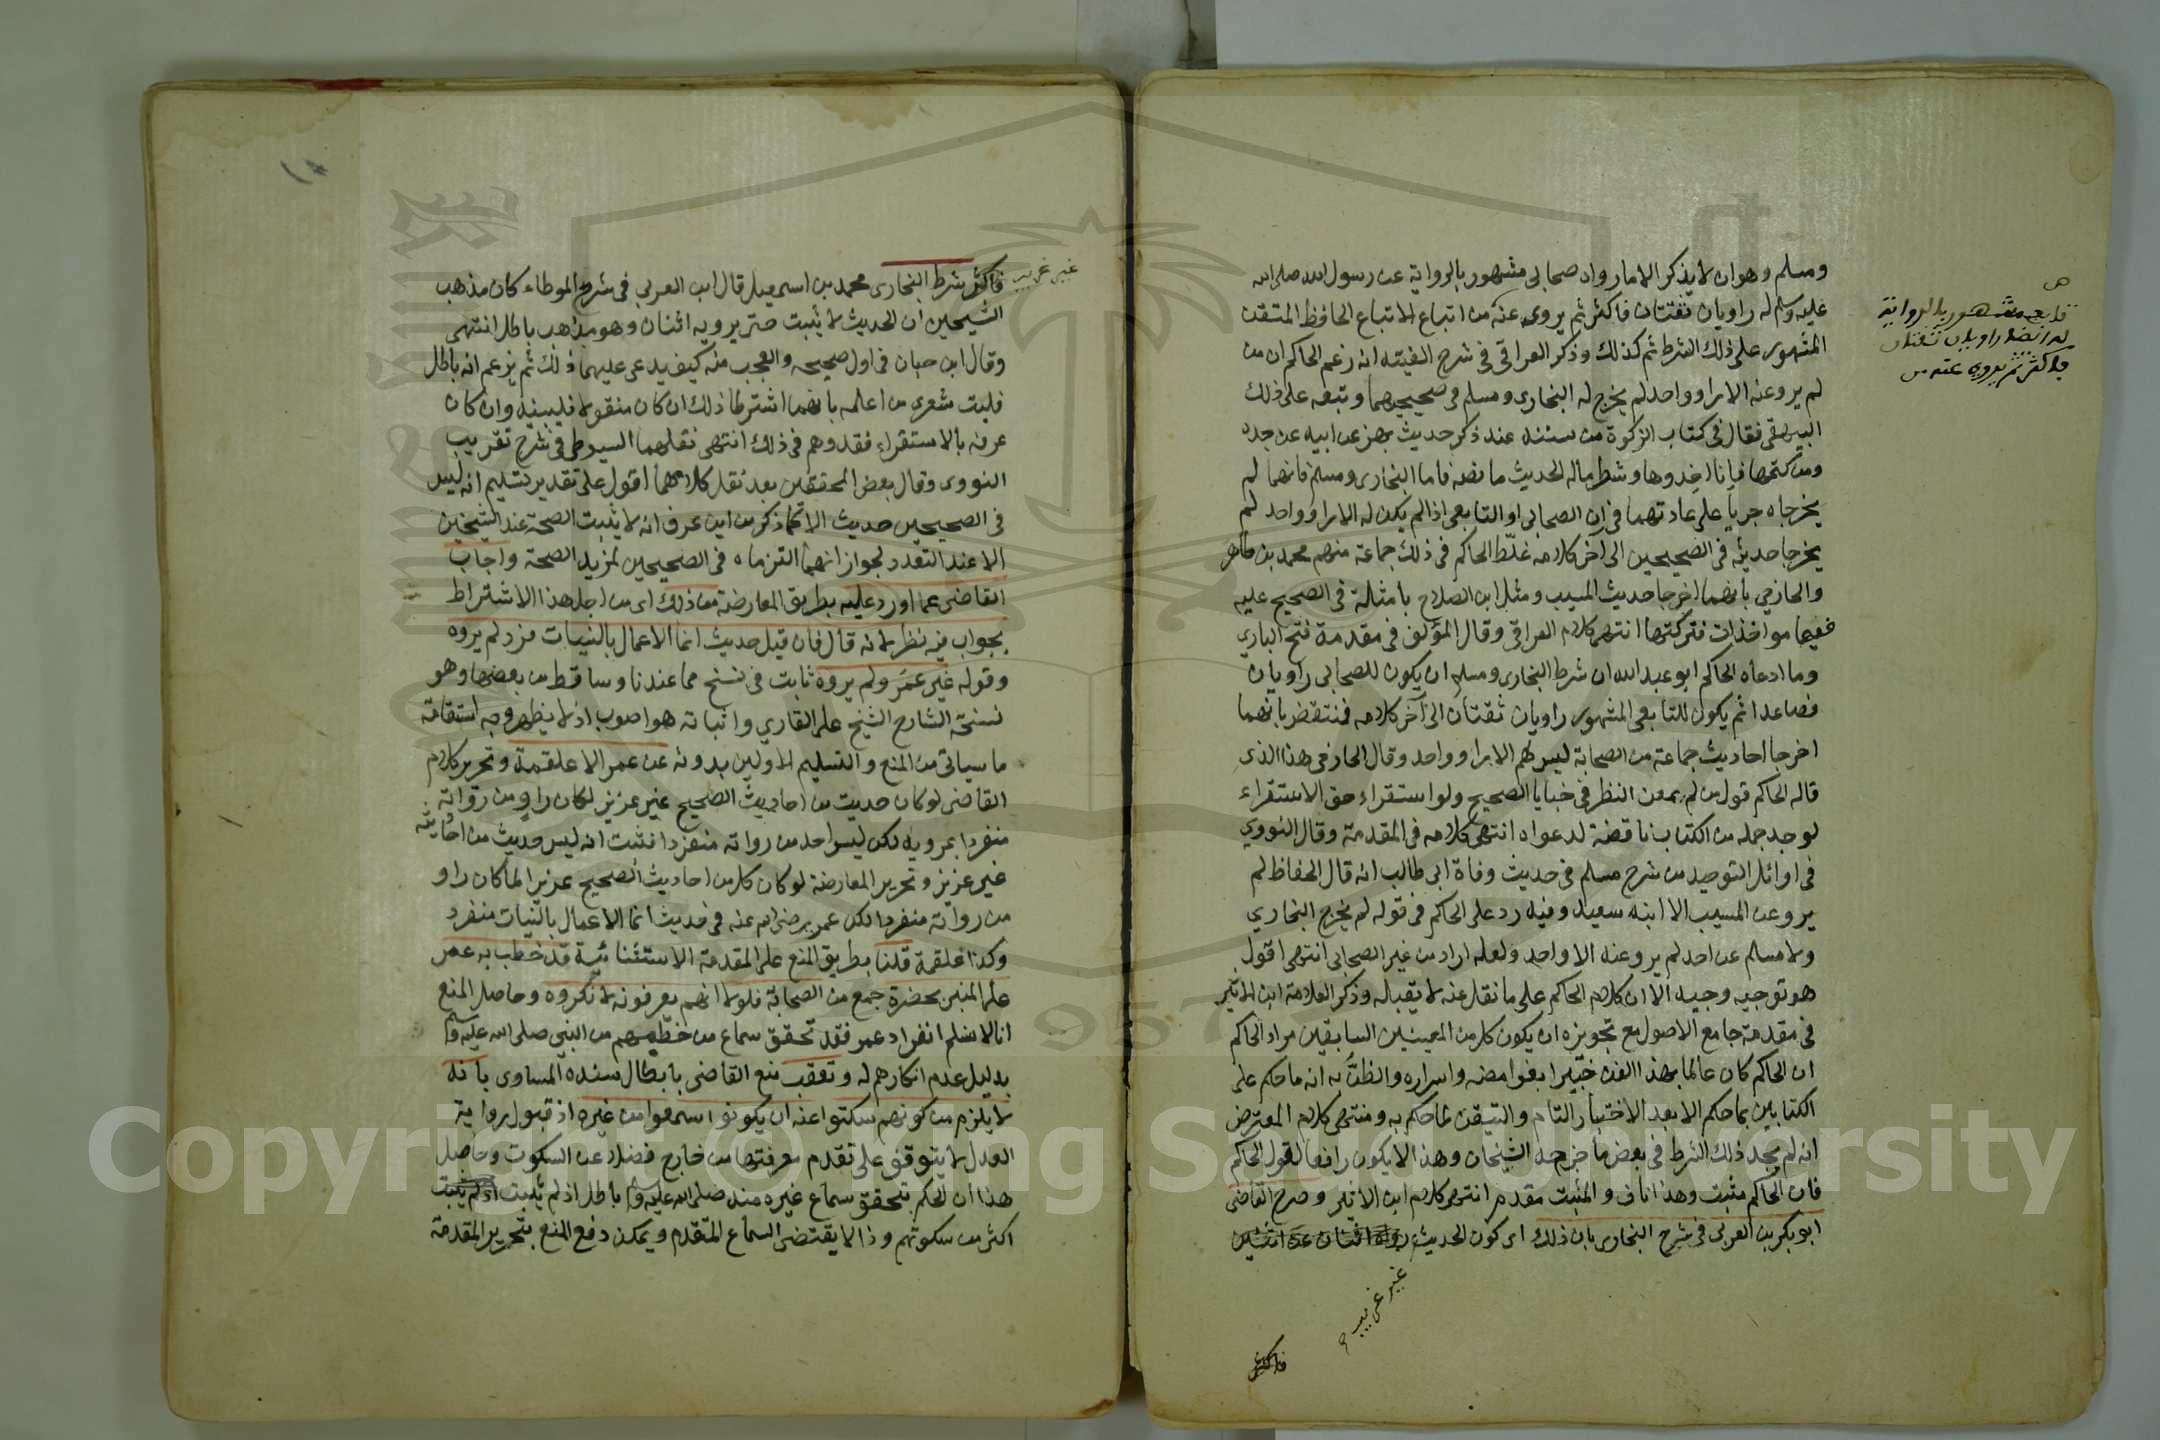 ومسلم وهو ان لا يذكر الا ما رواه صحابي مشهور بالرواية عن رسول الله صلى الله
عليه وسلم له راويان ثقتان فاكثر ثم يروي عنه من اتباع الاتباع الحافظ المتقن
المشهور على ذلك الشرط ثم كذلك وذكر العراقي في شرح الفيته انه زعم الحاكم ان من
لم يرو عنه الا راو واحد لم يخرج له البخاري ومسلم في صحيحيهما وتبعه على ذلك
البيهقي فقال في كتاب الزكوة من سننه عند ذكر حديث بهز عن ابيه عن جده
ومن كتمها فإنا اخذوها وشطر ماله الحديث ما نصه فاما البخاري ومسلم فانهما لم
يخرجاه جريا على عادتهما في ان الصحابي او التابعي اذا لم يكن له الا راو واحد لم
يخرجا حديثه في الصحيحين الى اخر كلامه غلّط الحاكم في ذلك جماعة منهم محمد بن طاهر
والحازمي بأنهما اخرجا حديث المسيب ومثل ابن الصلاح بأمثلة في الصحيح عليه
فيها مواخذات فتركتها انتهى كلام العراقي وقال المؤلف في مقدمة فتح الباري
وما ادعاه الحاكم ابو عبد الله ان شرط البخاري ومسلم ان يكون للصحابي راويان
فصاعدا ثم يكون للتابعي المشهور راويان ثقتان الى آخر كلامه فمنتقض بانهما
اخرجا احاديث جماعة من الصحابة ليس لهم الا راو واحد وقال الحازمي هذا الذي
قاله الحاكم قول من لم يمعن النظر في خبايا الصحيح ولو استقراء حق الاستقراء
لوجد جملة من الكتاب ناقضة لدعواه انتهى كلامه في المقدمة وقال النووي
في اوائل التوحيد من شرح مسلم في حديث وفاة ابي طالب انه قال الحفاظ لم
يرو عن المسيب الا ابنه سعيد وفيه رد على الحاكم في قوله لم يخرج البخاري
ولا مسلم عن احد لم يرو عنه الا واحد ولعله اراد من غير الصحابي انتهى اقول
هو توجيه وجيه الا ان كلام الحاكم على ما نقل عنه لا يقبله وذكر العلامة ابن الاثير
في مقدمة جامع الاصول مع تجويزه ان يكون كل من المعنيين السابقين مراد الحاكم
ان الحاكم كان عالما بهذا الفن خبيرا بغوامضه واسراره والظن به انه ما حكم على
الكتابين بما حكم الا بعد الاختبار التام والتيقن لما حكم به ومنتهى كلام المعترض
انه لم يجد ذلك الشرط في بعض ما خرجه الشيخان وهذا لا يكون رافعا لقول الحاكم
فان الحاكم مثبت وهذا ناف والمثبت مقدم انتهى كلام ابن الاثير وصرح القاضي
ابو بكر بن العربي في شرح البخاري بان ذلك اي كون الحديث
غير غريب
فاكثر
ص
تابعي مشهور بالرواية
له ايضا راويان ثقتان
فاكثر ثم يروي عنه من
غير غريب
فاكثر شرط البخاري محمد بن اسمعيل قال ابن العربي في شرح الموطاء كان مذهب
الشيخين ان الحديث لا يثبت حتى يرويه اثنان وهو مذهب باطل انتهى
وقال ابن حبان في اول صحيحه والعجب منه كيف يدعي عليهما ذلك ثم يزعم انه باطل
فليت شعري من اعلمه بانهما اشترطا ذلك ان كان منقولا فليبينه وان كان
عرفه بالاستقراء فقد وهم في ذلك انتهى نقلهما السيوطي في شرح تقريب
النووي وقال بعض المحققين بعد نقل كلامهما اقول على تقدير تسليم انه ليس
في الصحيحين حديث الا كما ذكر من اين عرف انه لا يثبت الصحة عند الشيخين
الا عند التعدد لجواز انهما التزماه في الصحيحين لمزيد الصحة واجاب
القاضي عما اورد عليه بطريق المعارضة من ذلك اي من اجل هذا الاشتراط
بجواب فيه نظر لانه قال فان قيل حديث انما الاعمال بالنيات فرد لم يروه
وقوله غير عمر ولم يروه ثابت في نسخ مما عندنا وساقط من بعضها وهو
نسخة الشارح الشيخ علي القاري واثباته هو اصوب اذ لا يظهر وجه استقامة
ما سيأتي من المنع والتسليم الاولين بدونه عن عمر الا علقمة وتحرير كلام
القاضي لو كان حديث من احاديث الصحيح غير عزيز لكان راو من رواته
منفردا بمرويه لكن ليس احد من رواته منفردا فثبت انه ليس حديث من احاديثه
غير عزيز وتحرير المعارضة لو كان كل من احاديث الصحيح عزيزا لما كان راو
من رواته منفردا لكن عمر رضي الله عنه في حديث انما الاعمال بالنيات منفرد
وكذا علقمة قلنا بطريق المنع على المقدمة الاستثنائية قد خطب به عمر
على المنبر بحضرة جمع من الصحابة فلولا انهم يعرفونه لانكروه وحاصل المنع
انا لا نسلم انفراد عمر فقد تحقق سماع من خطبهم من النبي صلى الله عليه وسلم
بدليل عدم انكارهم له وتعقب منع القاضي بابطال سنده المساوي بانه
لا يلزم من كونهم سكتوا عنه ان يكونوا سمعوا من غيره اذ قبول رواية
العدل لا يتوقف على تقدم معرفتها من خارج فضلا عن السكوت وحاصل
هذا ان الحكم بتحقق سماع غيره منه صلى الله عليه وسلم باطل اذ لم يثبت
اكثر من سكوتهم وذا لا يقتضي السماع المتقدم ويمكن دفع المنع بتحرير المقدمة
Copyright © King Saud University
1957